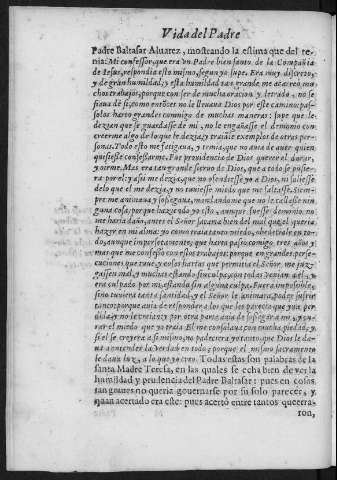 Vida del Padre
Padre Baltasar Aluarez, mostrando la estima que del te-
nia: Mi confessor, que era vn Padre bien santo de la Compañia
de Iesus, respondia esto mismo, segun yo supe. Era muy discreto,
y de gran humildad, y esta humildad tan grande me acarreó mu-
chos trabajos, porque con ser de mucha oracion y letrado, no se
fiaua de si, como entõces no le lleuaua Dios por este camino; pas-
solos harto grandes conmigo de muchas maneras: supe que le
dezian que se guardasse de mi, no le engañasse el demonio con
creerme algo de lo que le dezia, y traiale exemplos de otras per-
sonas. Todo esto me fatigaua, y temia, que no auia de auer quien
quisiesse confessarme. Fue prouidencia de Dios querer el durar,
y oirme. Mas era tan grande sieruo de Dios, que a todo se pusie-
ra por el: y assi me dezia, que no ofendiesse yo a Dios, ni saliesse
delo que el me dezia, y no tuuiesse miedo que me faltasse. Siem-
pre me animaua y sossegaua, mandandome que no le callasse nin-
guna cosa, porque haziendo yo esto, aunque fuesse demonio, no
me haria daño, antes el Señor sacaria bien del mal que el queria
hazer en mi alma: yo como traia tanto miedo, obedeciale en to-
do, aunque imperfetamente, que harto passò conmigo tres años y
mas que me confessò con estos trabajos: porque en grandes perse-
cuciones que tuue, y cosas hartas que permitia el Señor, me juz-
gassen mal, y muchas estando sin culpa, con todas venian a el, y
era culpado por mi, estando sin alguna culpa. Fuera impossible,
sino tuuiera tanta santidad, y el Señor le animara, poder sufrir
tanto: porque auia de responder a los que les parecia que yua per-
dida, y no le creian: y por otra parte auia de sossegar a mi, y cu-
rar el miedo que yo traia. El me consolaua con mucha piedad, y
si el se creyera a si mismo, no padeciera yo tanto, que Dios le da-
ua a entender la verdad en todo; porque el mismo sacramento
le daua luz, a lo que yo creo. Todas estas son palabras de la
santa Madre Teresa, en las quales se echa bien de ver la
humildad y prudencia del Padre Baltasar: pues en cosas
tan graues no queria gouernarse por su solo parecer, y
quan acertado era este: pues acertò entre tantos que erra-
ron,